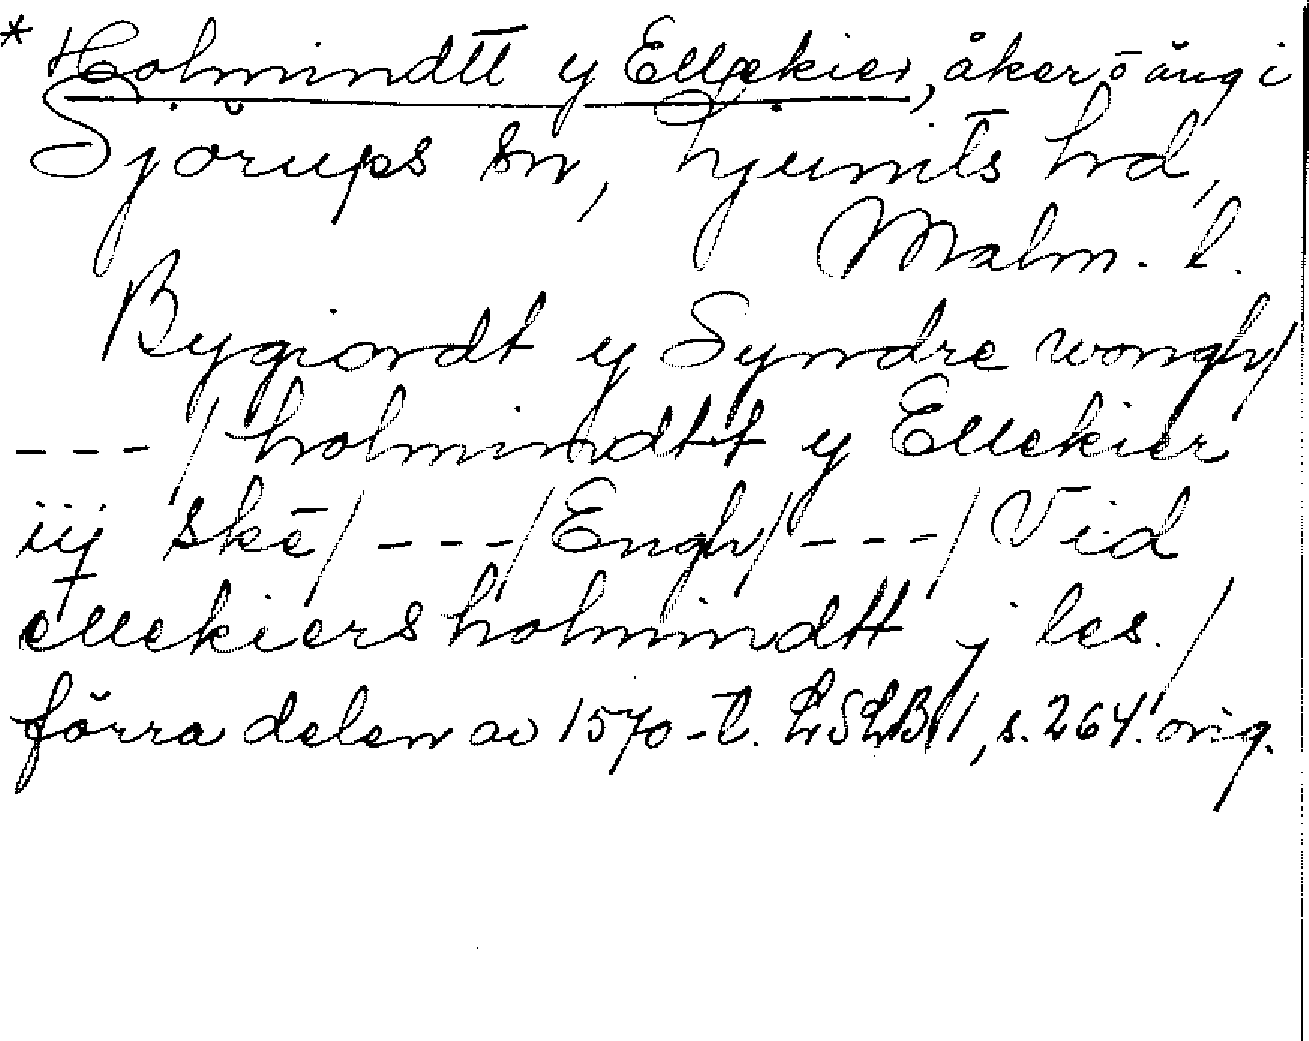 * Holmindtt y Ellekier, åker o äng i
Sjörups sn, Ljunits hd,
Malm. l.
Bygiordt y Syndre wongh/
---/holmindtt y Ellekier
iij skē/---/Engh/---/Vid
ellekiers holmindtt j les./
förra delen av 1570-t. LSLB 1, s. 264. orig.